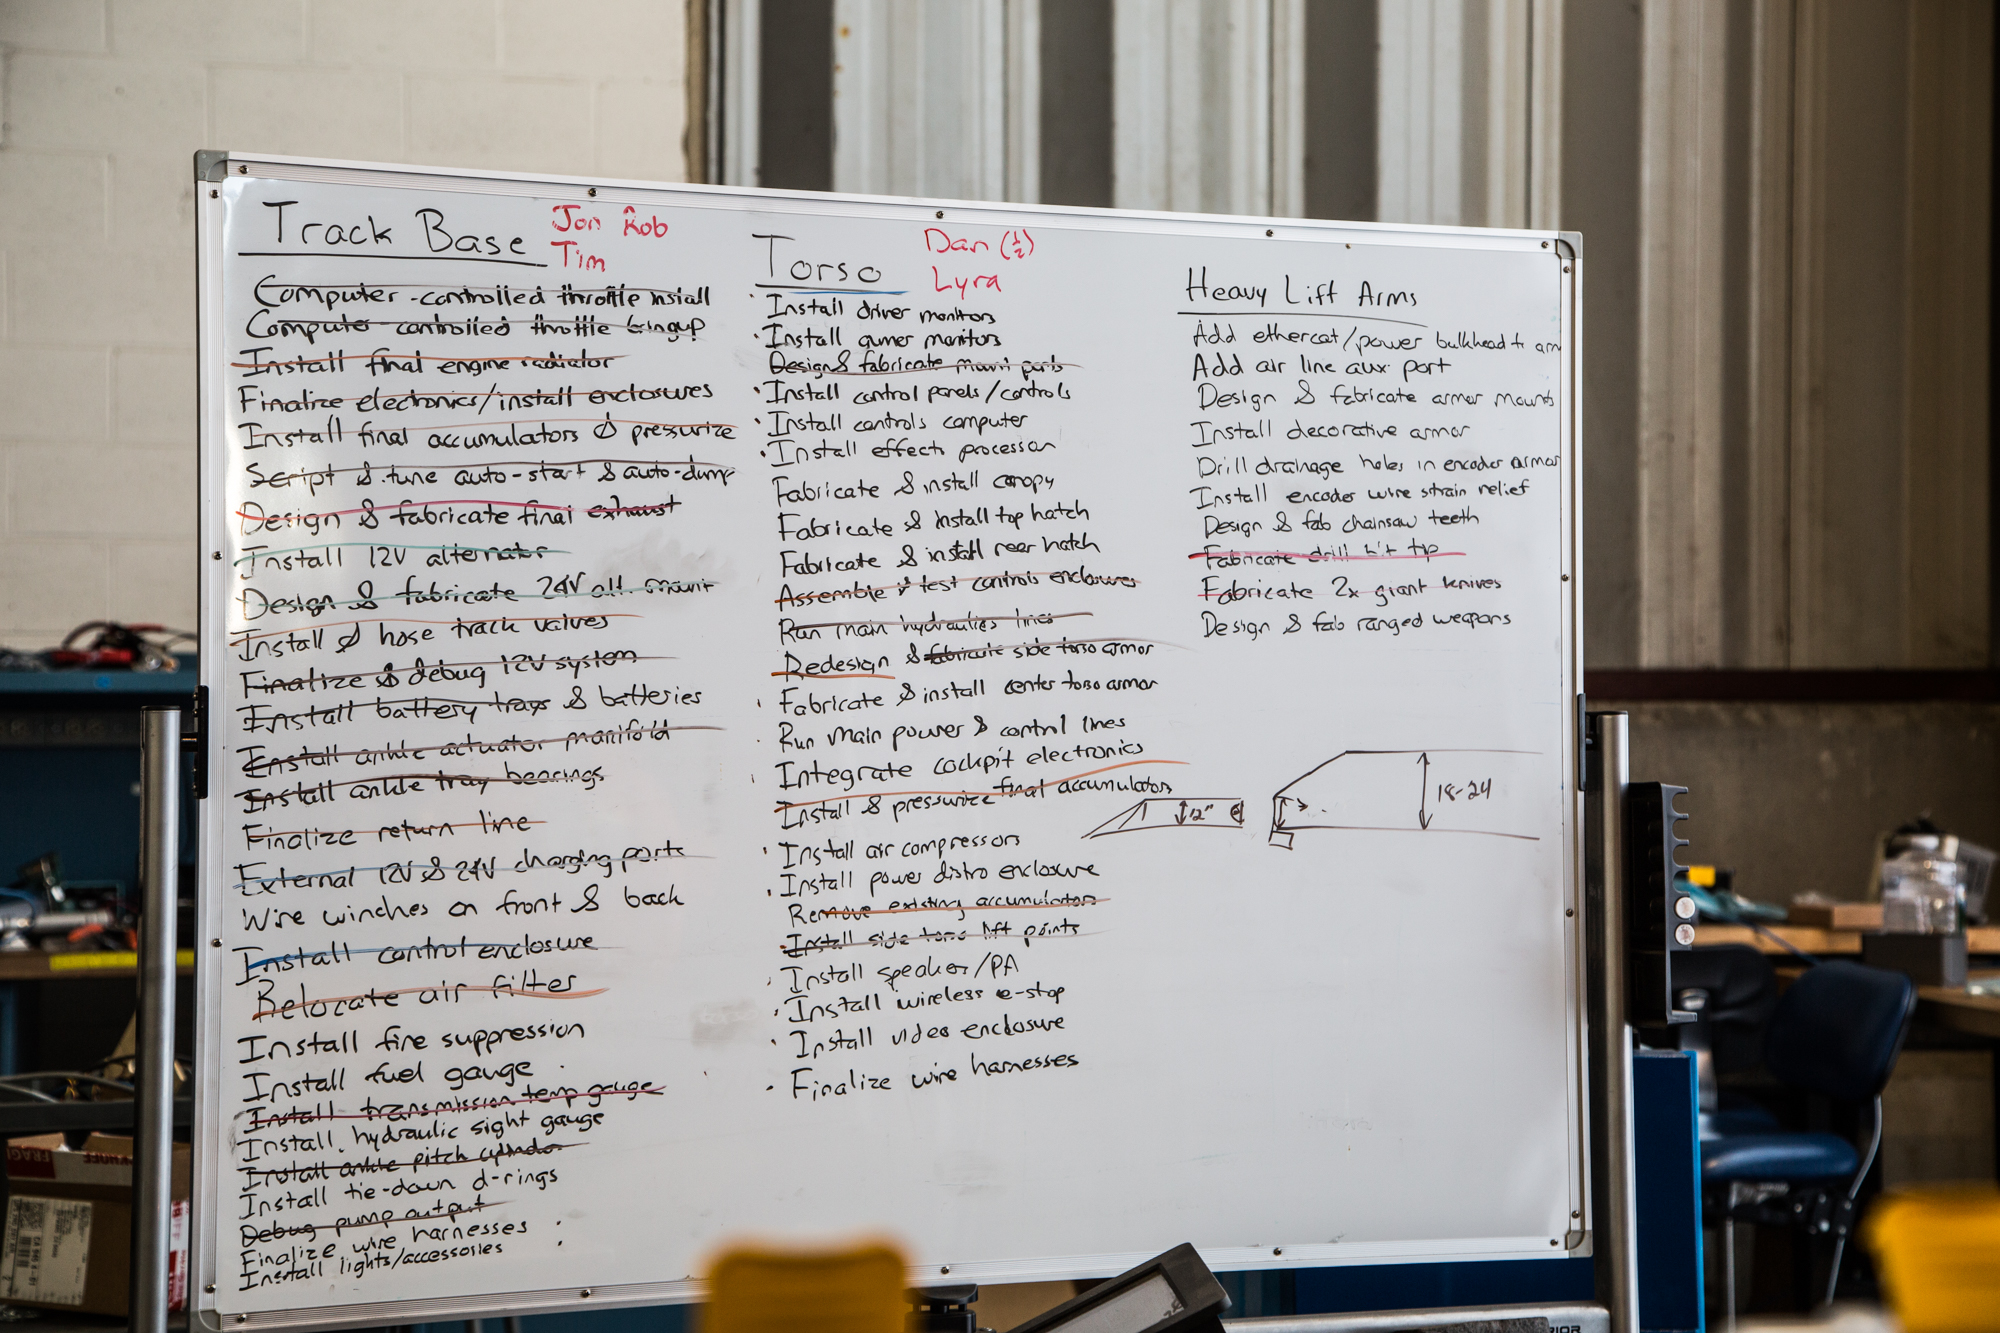 Track Base
Jon Rob
Tim
Computer-controlled throttle install
Computer controlled throttle bringup
Install final engine radiator
Finalize electronics/install enclosures
Install final accumulators & pressurize
Script & tune auto-start & auto-dump
Design & fabricate final exhaust
Install 12V alternator
Design & fabricate 24V alt. mount
Install & hose track valves
Finalize & debug 12V system
Install battery trays & batteries
Install ankle actuator manifold
Install ankle tray bearings
Finalize return line
External 12V & 24V charging ports
Wire winches on front & back
Install control enclosure
Relocate air filter
Install fire suppression
Install fuel gauge
Install transmission temp gauge
Install hydraulic sight gauge
Install ankle pitch cylinder
Install tie-down d-rings
Debug pump output
Finalize wire harnesses
Install lights/accessories
Torso
Dan (1/2)
Lyra
Install driver monitors
Install gunner monitors
Design & fabricate mount parts
Install control panels/controls
Install controls computer
Install effects processor
Fabricate & install canopy
Fabricate & install top hatch
Fabricate & install rear hatch
Assemble & test controls enclosures
Run main hydraulics lines
Redesign & fabricate side torso armor
Fabricate & install center torso armor
Run main power & control lines
Integrate cockpit electronics
Install & pressurize final accumulators
Install air compressors
Install power distro enclosure
Remove existing accumulators
Install side torso lift points
Install speaker/PA
Install wireless e-stop
Install video enclosure
Finalize wire harnesses
Heavy Lift Arms
Add ethercat/power bulkhead to arm
Add air line aux port
Design & fabricate armor mounts
Install decorative armor
Drill drainage holes in encoder armor
Install encoder wire strain relief
Design & fab chainsaw teeth
Fabricate drill bit tip
Fabricate 2x giant knives
Design & fab ranged weapons
12"
18-24